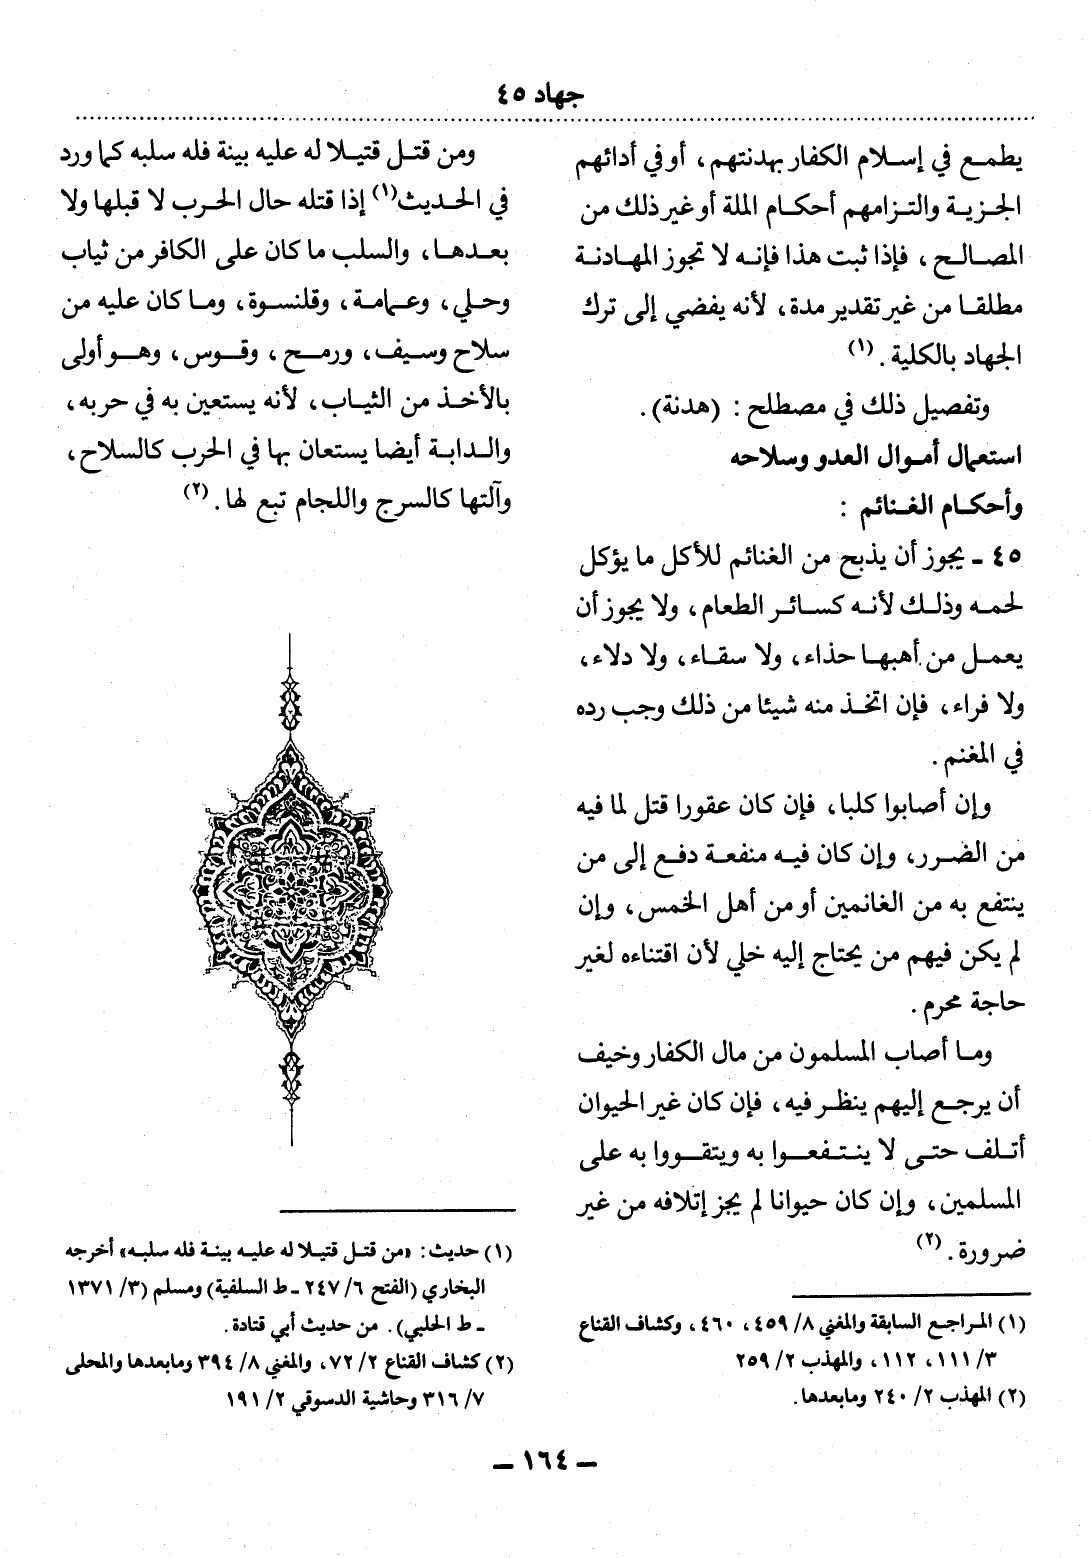 جهاد ٤٥
يطمع في إسلام الكفار بهدنتهم، أو في أدائهم
الجزية والتزامهم أحكام الملة أو غير ذلك من
المصالح، فإذا ثبت هذا فإنه لا تجوز المهادنة
مطلقا من غير تقدير مدة، لأنه يفضي إلى ترك
الجهاد بالكلية. (١)
وتفصيل ذلك في مصطلح: (هدنة).
استعمال أموال العدو وسلاحه
وأحكام الغنائم :
٤٥ ـ يجوز أن يذبح من الغنائم للأكل ما يؤكل
لحمه وذلك لأنه كسائر الطعام، ولا يجوز أن
يعمل من أهبها حذاء، ولا سقاء، ولا دلاء،
ولا فراء، فإن اتخذ منه شيئا من ذلك وجب رده
في المغنم.
وإن أصابوا كلبا، فإن كان عقورا قتل لما فيه
من الضرر، وإن كان فيه منفعة دفع إلى من
ينتفع به من الغانمين أو من أهل الخمس، وإن
لم يكن فيهم من يحتاج إليه خلي لأن اقتناءه لغير
حاجة محرم.
وما أصاب المسلمون من مال الكفار وخيف
أن يرجع إليهم ينظر فيه، فإن كان غير الحيوان
أتلف حتى لا ينتفعوا به ويتقووا به على
المسلمين، وإن كان حيوانا لم يجز إتلافه من غير
ضرورة. (٢)
(١) المراجع السابقة والمغني ٨/ ٤٥٩، ٤٦٠، وكشاف القناع
٣/ ١١١، ١١٢، والمهذب ٢/ ٢٥٩
(٢) المهذب ٢/ ٢٤٠ ومابعدها.
ومن قتل قتيلا له عليه بينة فله سلبه كما ورد
في الحديث(١) إذا قتله حال الحرب لا قبلها ولا
بعدها، والسلب ما كان على الكافر من ثياب
وحلي، وعمامة، وقلنسوة، وما كان عليه من
سلاح وسيف، ورمح، وقوس، وهو أولى
بالأخذ من الثياب، لأنه يستعين به في حربه،
والدابة أيضا يستعان بها في الحرب كالسلاح،
وآلتها كالسرج واللجام تبع لها. (٢)
(١) حديث: «من قتل قتيلا له عليه بينة فله سلبه» أخرجه
البخاري (الفتح ٦/ ٢٤٧ ـ ط السلفية) ومسلم (٣/ ١٣٧١
ـ ط الحلبي). من حديث أبي قتادة.
(٢) كشاف القناع ٢/ ٧٢، والمغني ٨/ ٣٩٤ ومابعدها والمحلى
٧/ ٣١٦ وحاشية الدسوقي ٢/ ١٩١
ـ ١٦٤ ـ